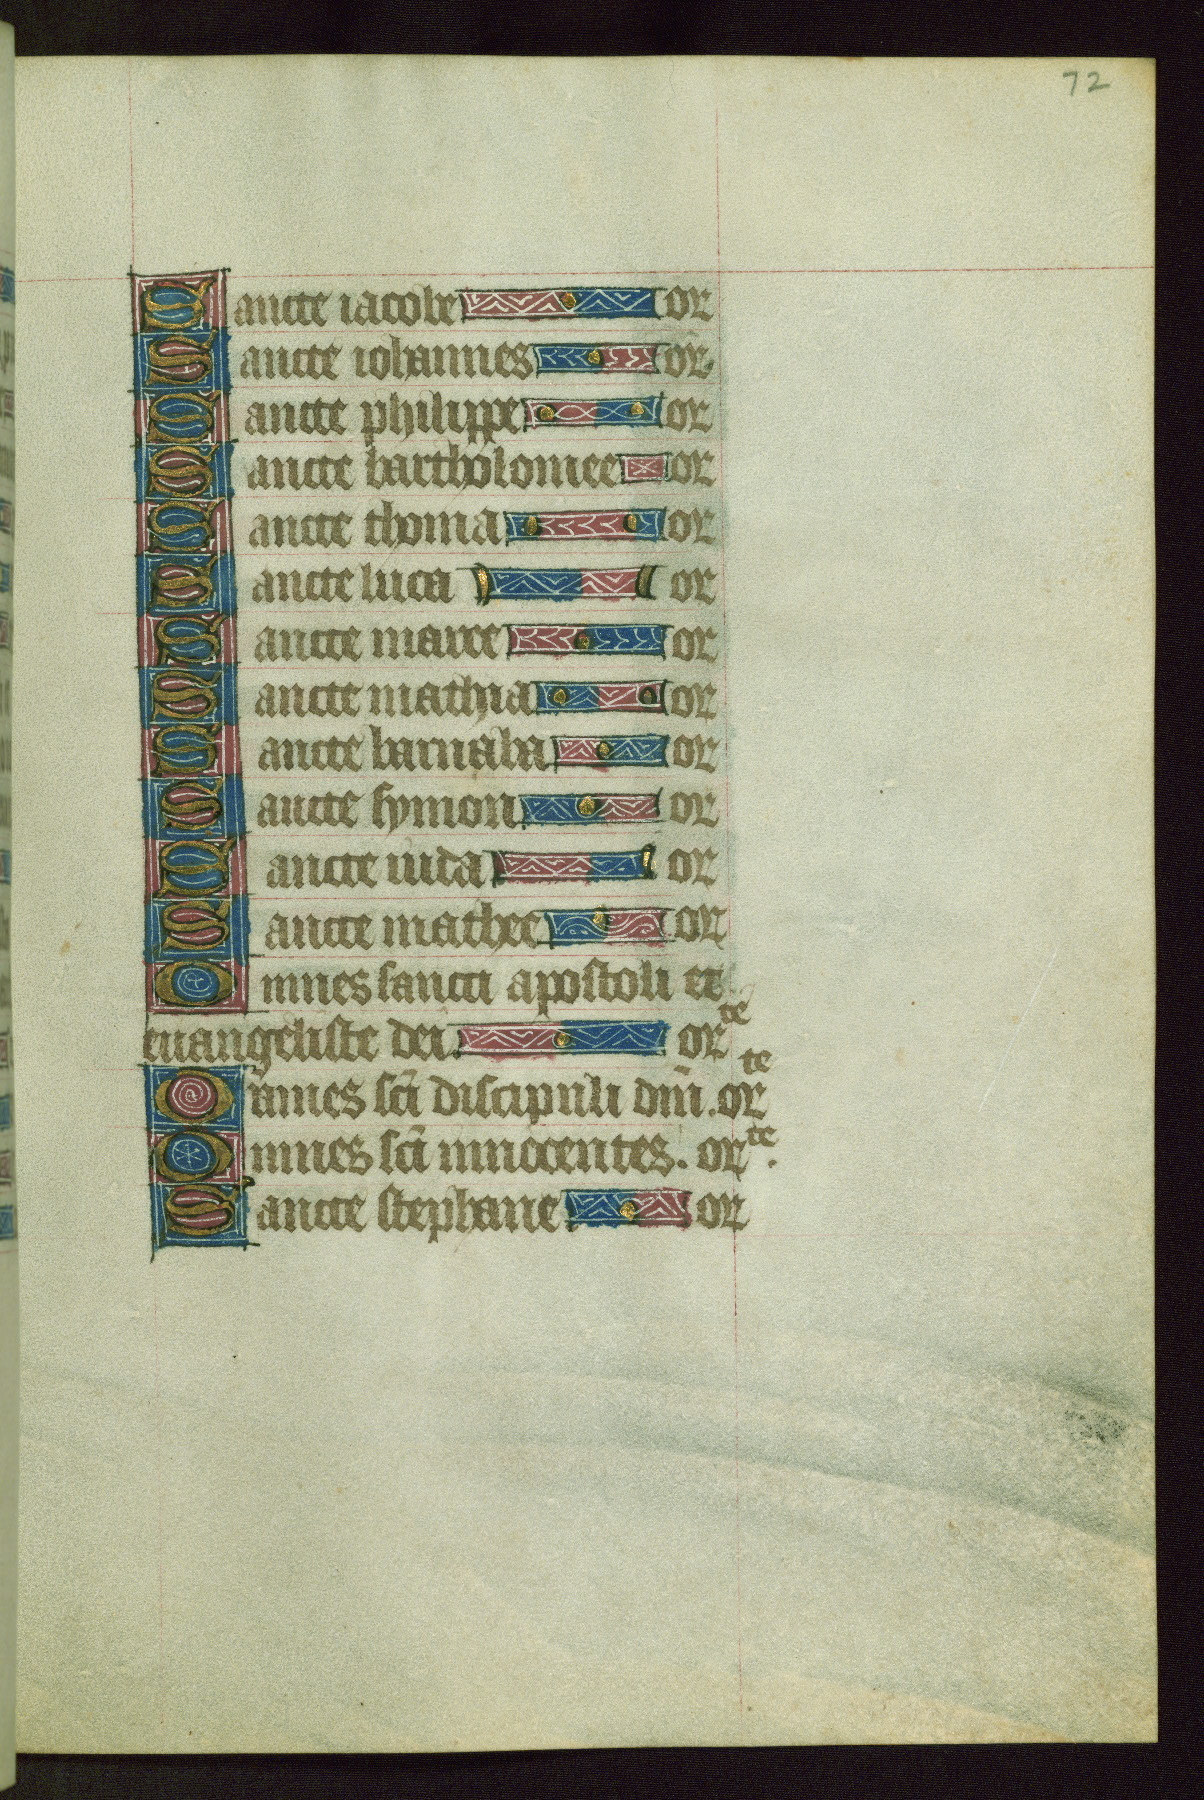 72
Sancte iacobe or
Sancte iohannes or
Sancte philippe or
Sancte bartholomee or
Sancte thoma or
Sancte luca or
Sancte marce or
Sancte mathia or
Sancte barnaba or
Sancte symon or
Sancte iuda or
Sancte mathee or
Omnes sancti apostoli et
euangeliste dei. orte
Omnes sc̄i discipuli dn̄i. orte
Omnes sc̄i innocentes. orte.
Sancte stephane or